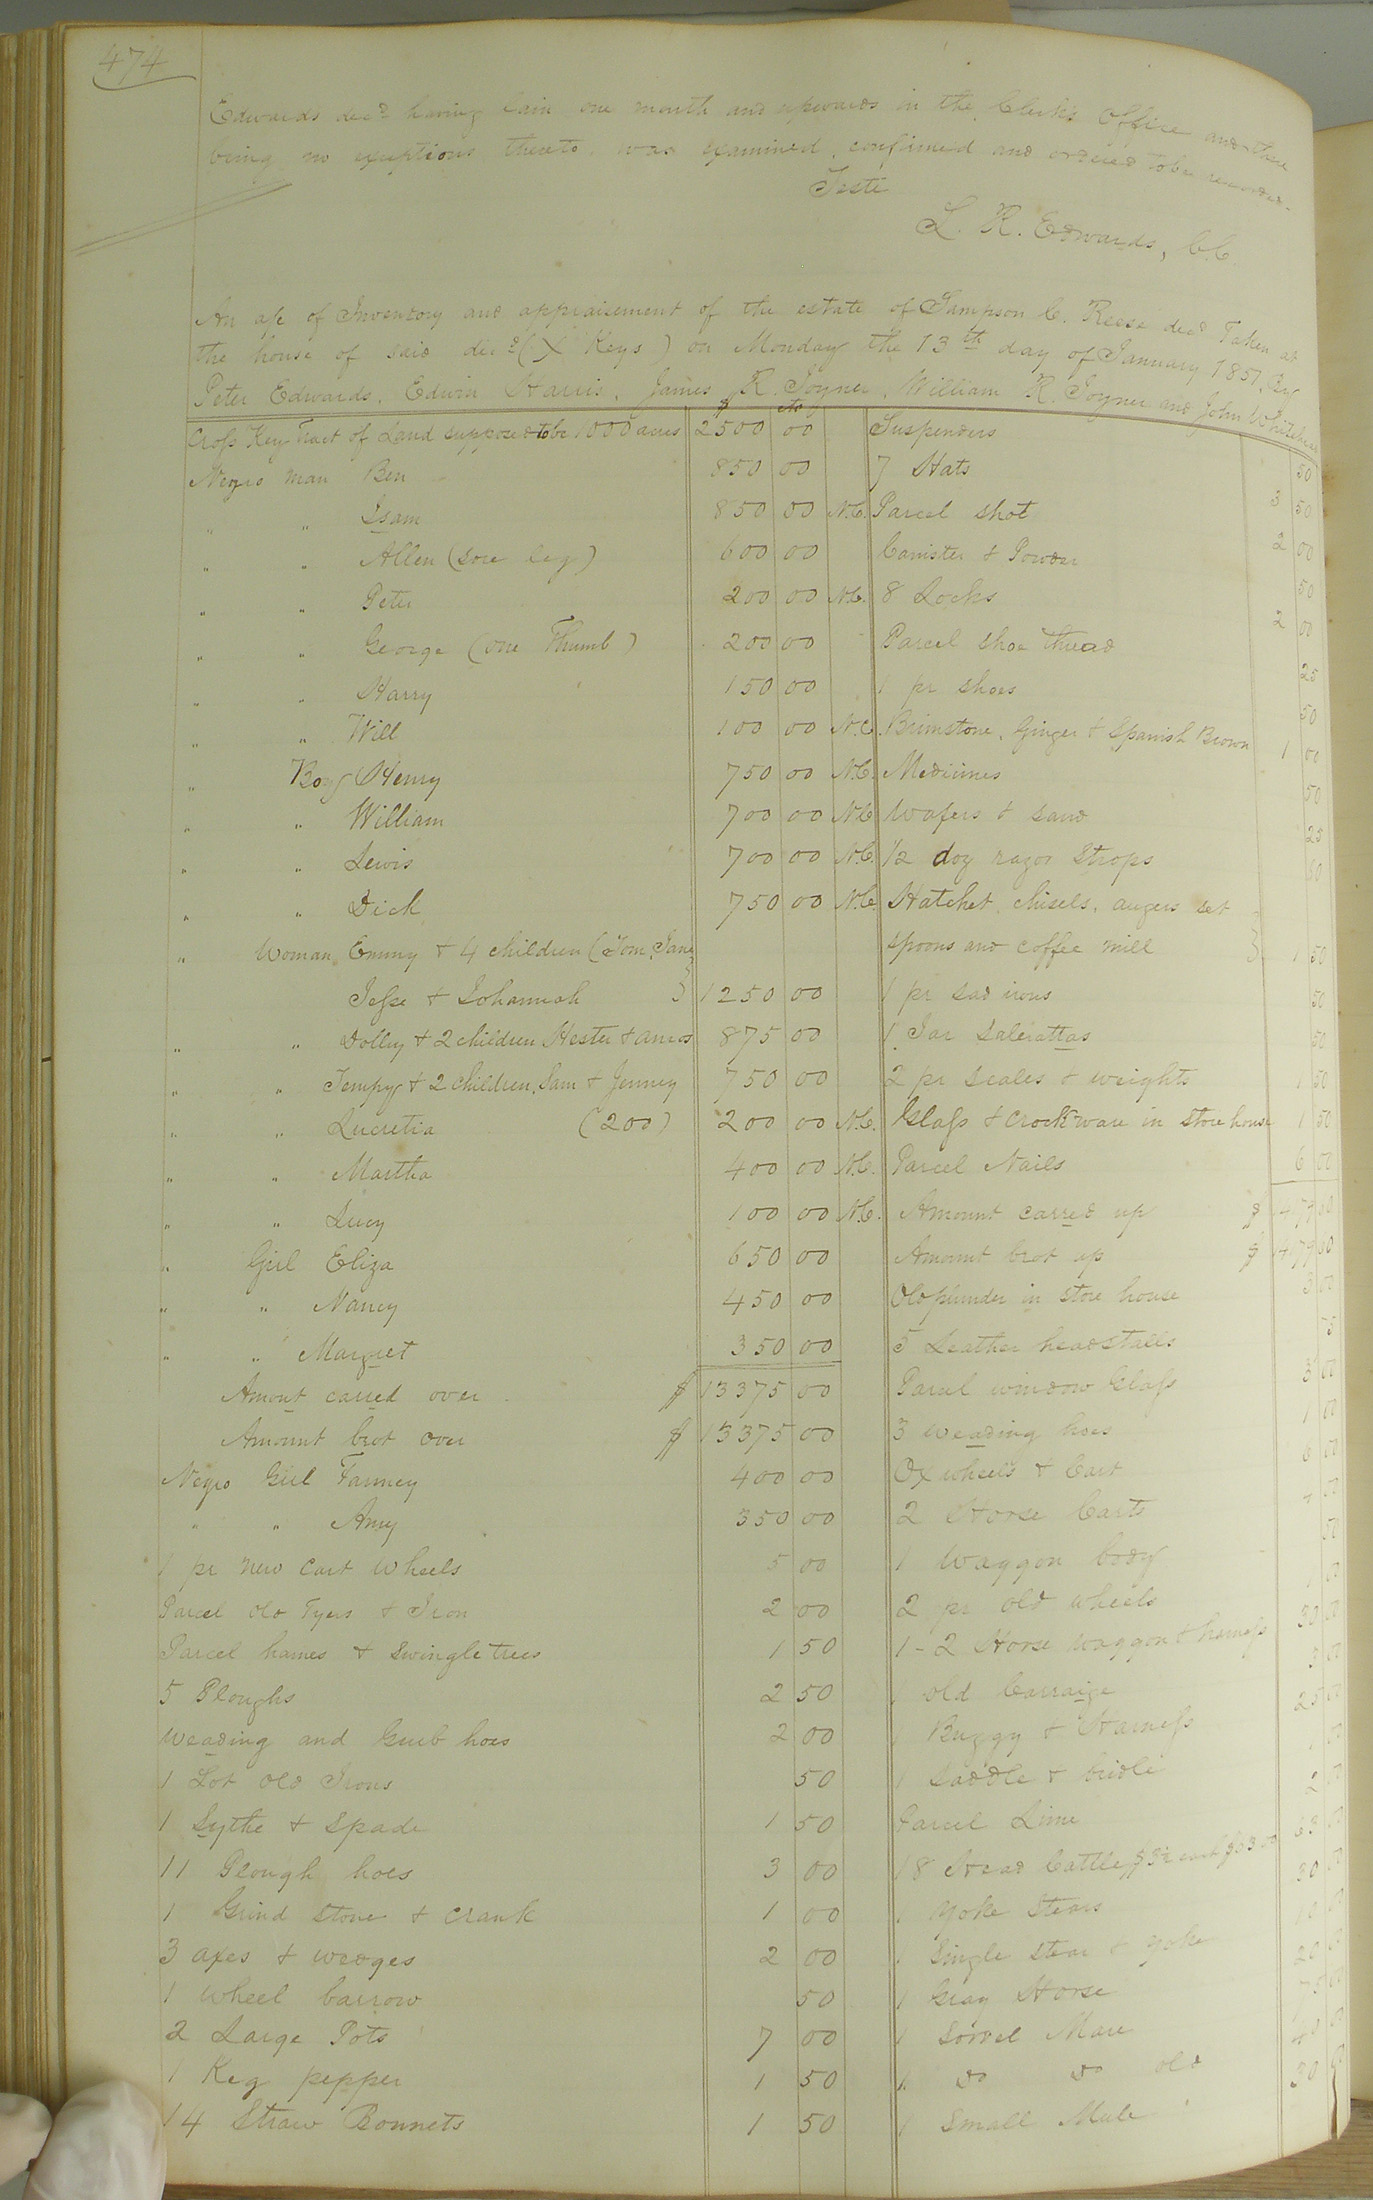 474
Edwards decd having lain one month and upwards in the Clerk's Office and there
being no exceptions thereto was examined, confirmed and ordered to be recorded.
Teste
L. R. Edwards, C.C.
An a/c of Inventory and appraisement of the estate of Sampson C. Reese decd Taken at
the house of said decd (X Keys) on Monday the 13th day of January 1851, By
Peter Edwards, Edwin Harris, James R. Joyner, William R. Joyner and John Whitehead
$ cts
Cross Key Tract of Land supposed to be 1000 acres 2500 00
Negro man Ben 850 00
" " Isam 850 00 N.C.
" " Allen (sore leg) 600 00
" " Peter 200 00 N.C.
" " George (one Thumb) 200 00
" " Harry 150 00
" " Will 100 00 N.C.
" Boy Henry 750 00 N.C.
" " William 700 00 N.C.
" " Lewis 700 00 N.C.
" " Dick 750 00 N.C.
" Woman Emmy & 4 children (Tom, Jane
Jesse & Johannah ) 1250 00
" " Dolly & 2 children Hester & Amos 875 00
" " Tempy & 2 children, Sam & Jenney 750 00
" " Lucretia (200) 200 00 N.C.
" " Martha 400 00 N.C.
" " Lucy 100 00 N.C.
" Girl Eliza 650 00
" " Nancy 450 00
" " Margret 350 00
Amount carred over $ 13375 00
Amount brot over $ 13375 00
Negro Girl Fanney 400 00
" " Amy 350 00
1 pr new Cart Wheels 5 00
Parcel old Tyers & Iron 2 00
Parcel hames & swingle trees 1 50
5 Ploughs 2 50
Weading and Grub hoes 2 00
1 Lot old Irons 50
1 Sythe & Spade 1 50
11 Plough hoes 3 00
1 Grind stone & crank 1 00
3 axes & wedges 2 00
1 wheel barrow 50
2 Large Pots 7 00
1 Keg pepper 1 50
14 Straw Bonnets 1 50
Suspenders 50
7 Hats 3 50
Parcel shot 2 00
Canister & Powder 50
8 Locks 2 00
Parcel shoe thread 25
1 pr shoes 50
Brimstone, Ginger & Spanish Brown 1 00
Medicines 50
Wafers & sand 25
1/2 doz razor Strops
Hatchet, chisels, augers set
spoons and coffee mill } 1 50
1 pr sad irons 50
1 Jar Salerattas 50
2 pr scales & weights 1 50
Glass & crockware in store house 1 50
Parcel Nails 6 00
Amount carred up $
Amount brot up $
Old plunder in store house 3 00
5 Leather headstalls
Parcel window Glass 3 00
3 weading hoes 1 00
Ox wheels & Cart 6 00
2 Horse Carts
1 Waggon body
2 pr old wheels
1 - 2 Horse waggon & harness 30 00
1 old Carraige
1 Buggy & Harness 25 00
1 Saddle & bridle
Parcel Lime 2
18 Head Cattle 63
1 Yoke Stears 30
1 Single stear & yoke
1 Gray Horse 20
1 Sorrel Mare
1 do do old
1 Small Mule 30